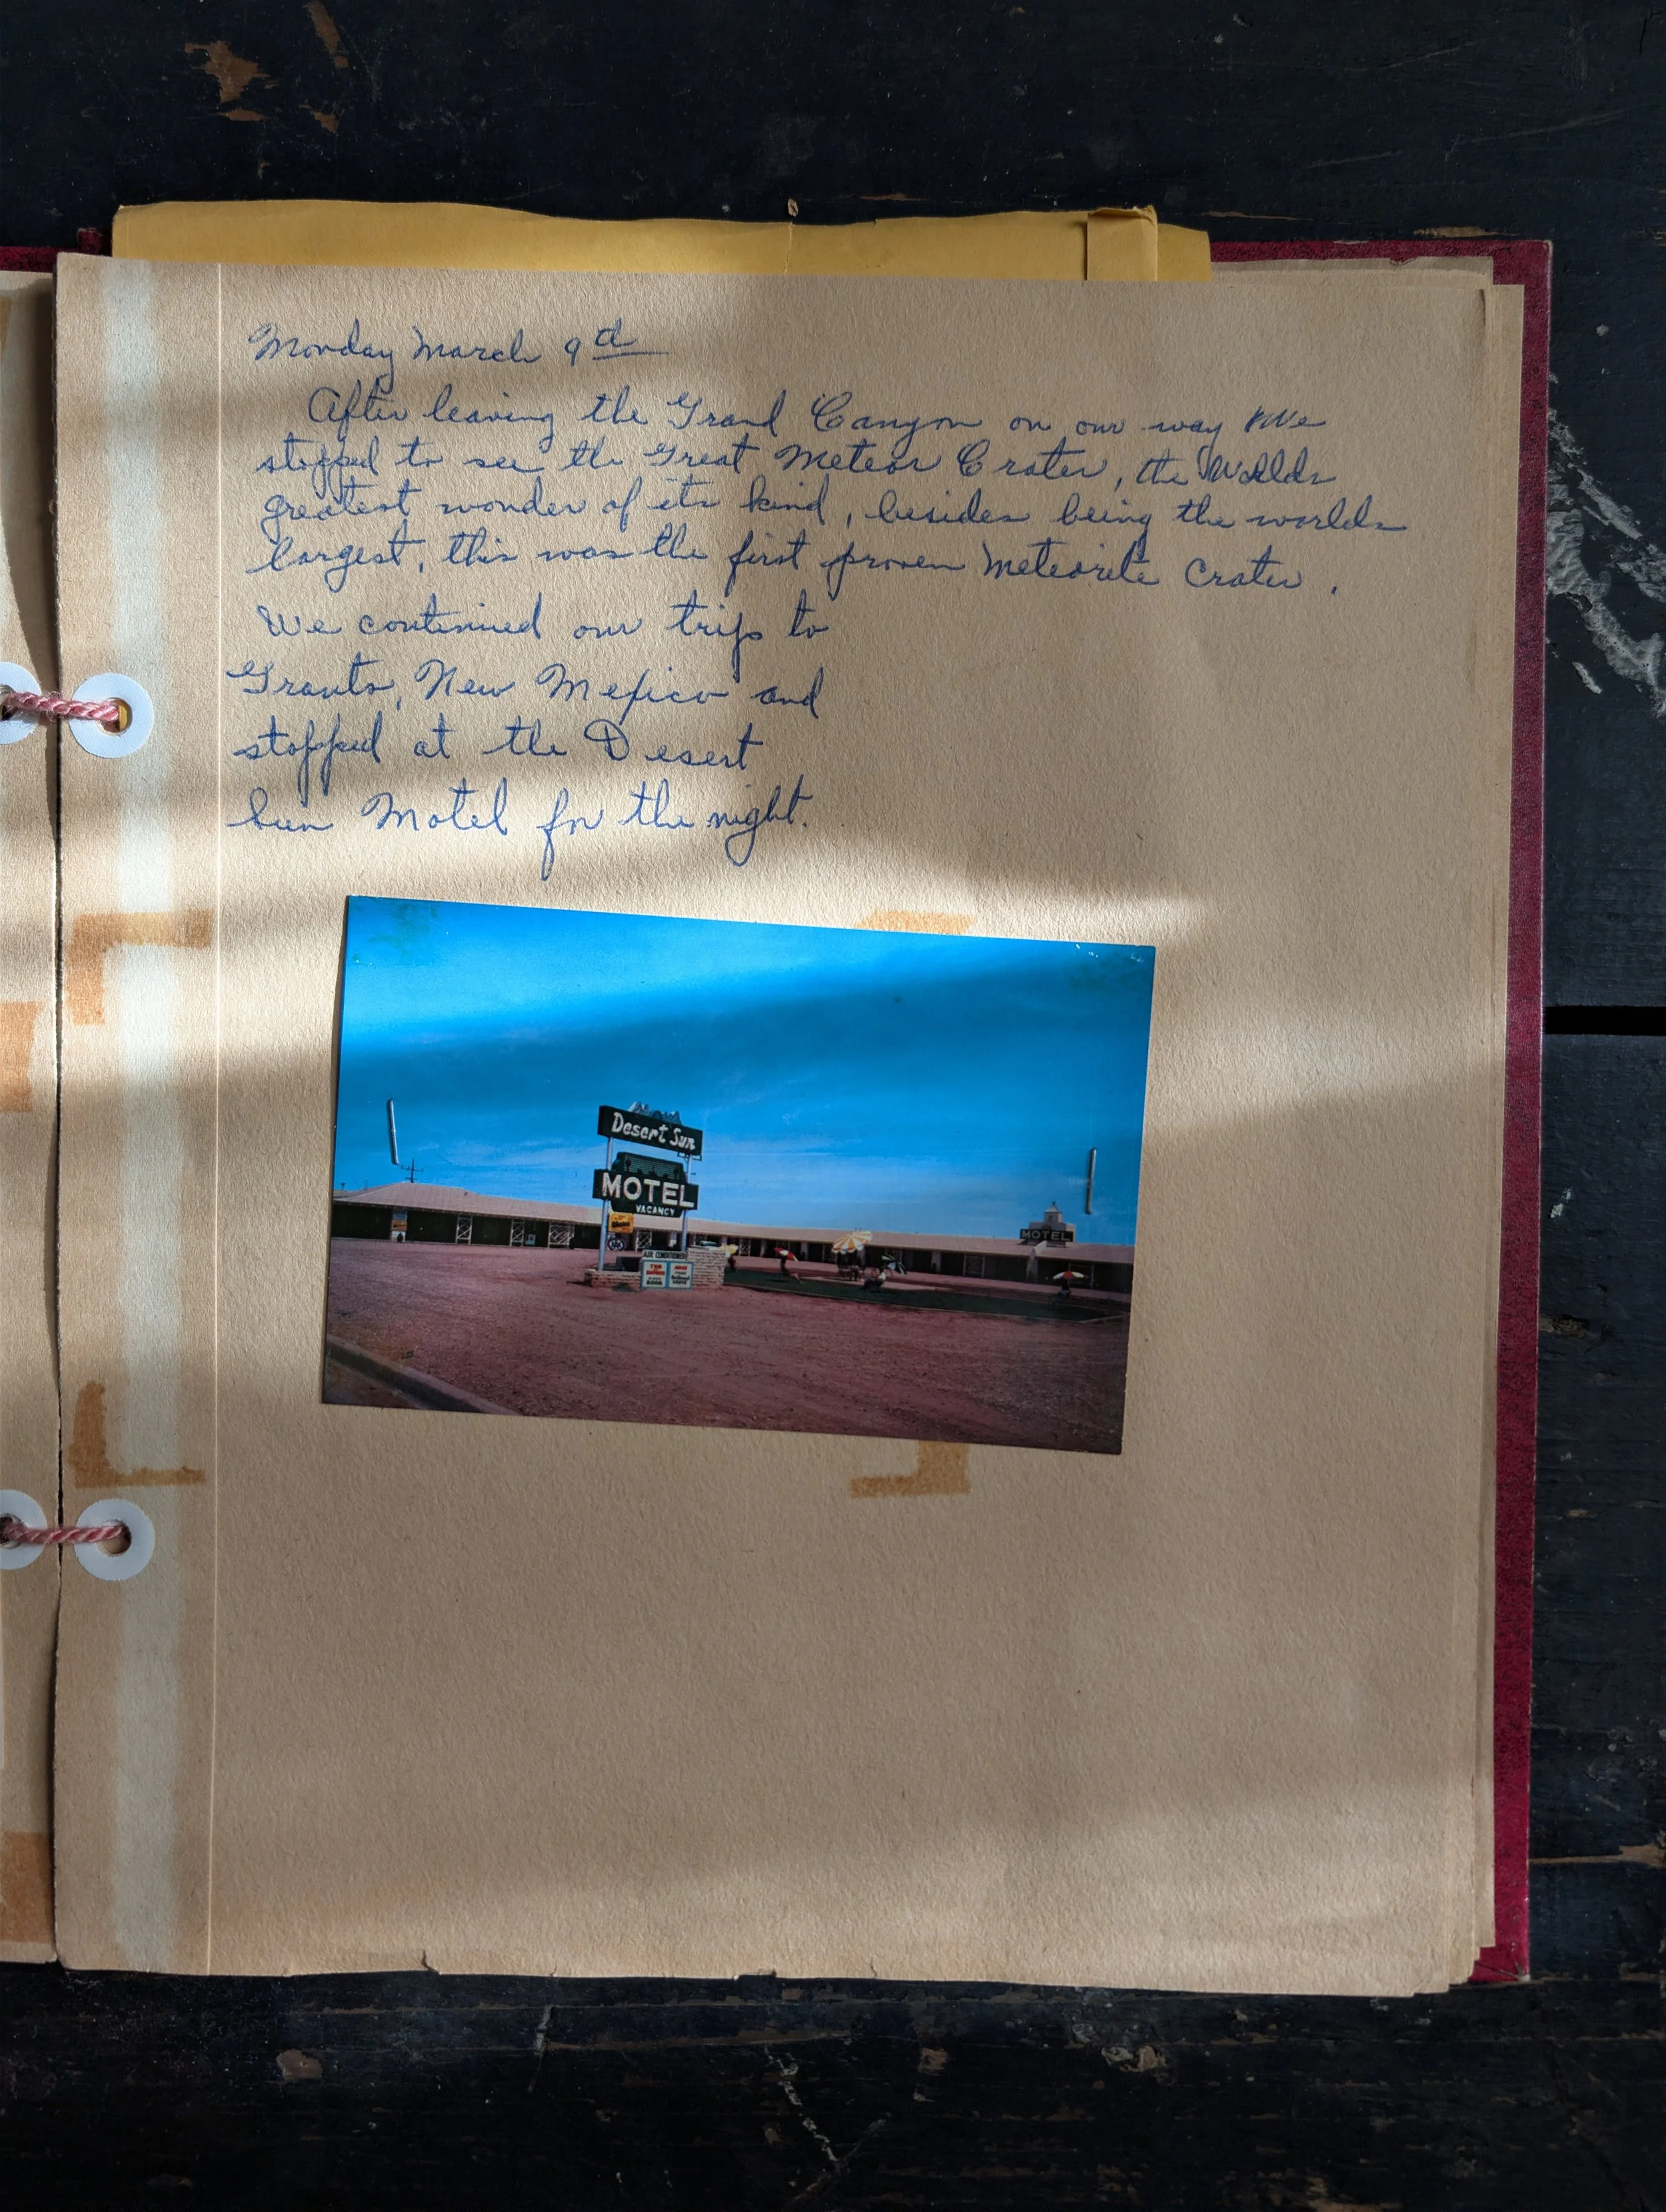 Monday March 9th
After leaving the Grand Canyon on our way We
stopped to see the Great Meteor Crater, the Worlds
greatest wonder of its kind, besides being the worlds
largest, this was the first proven Meteorite Crater.
We continued our trip to
Grants, New Mexico and
stopped at the Desert
Sun Motel for the night.
Desert Sun
MOTEL
VACANCY
MOTEL
AIR CONDITIONED